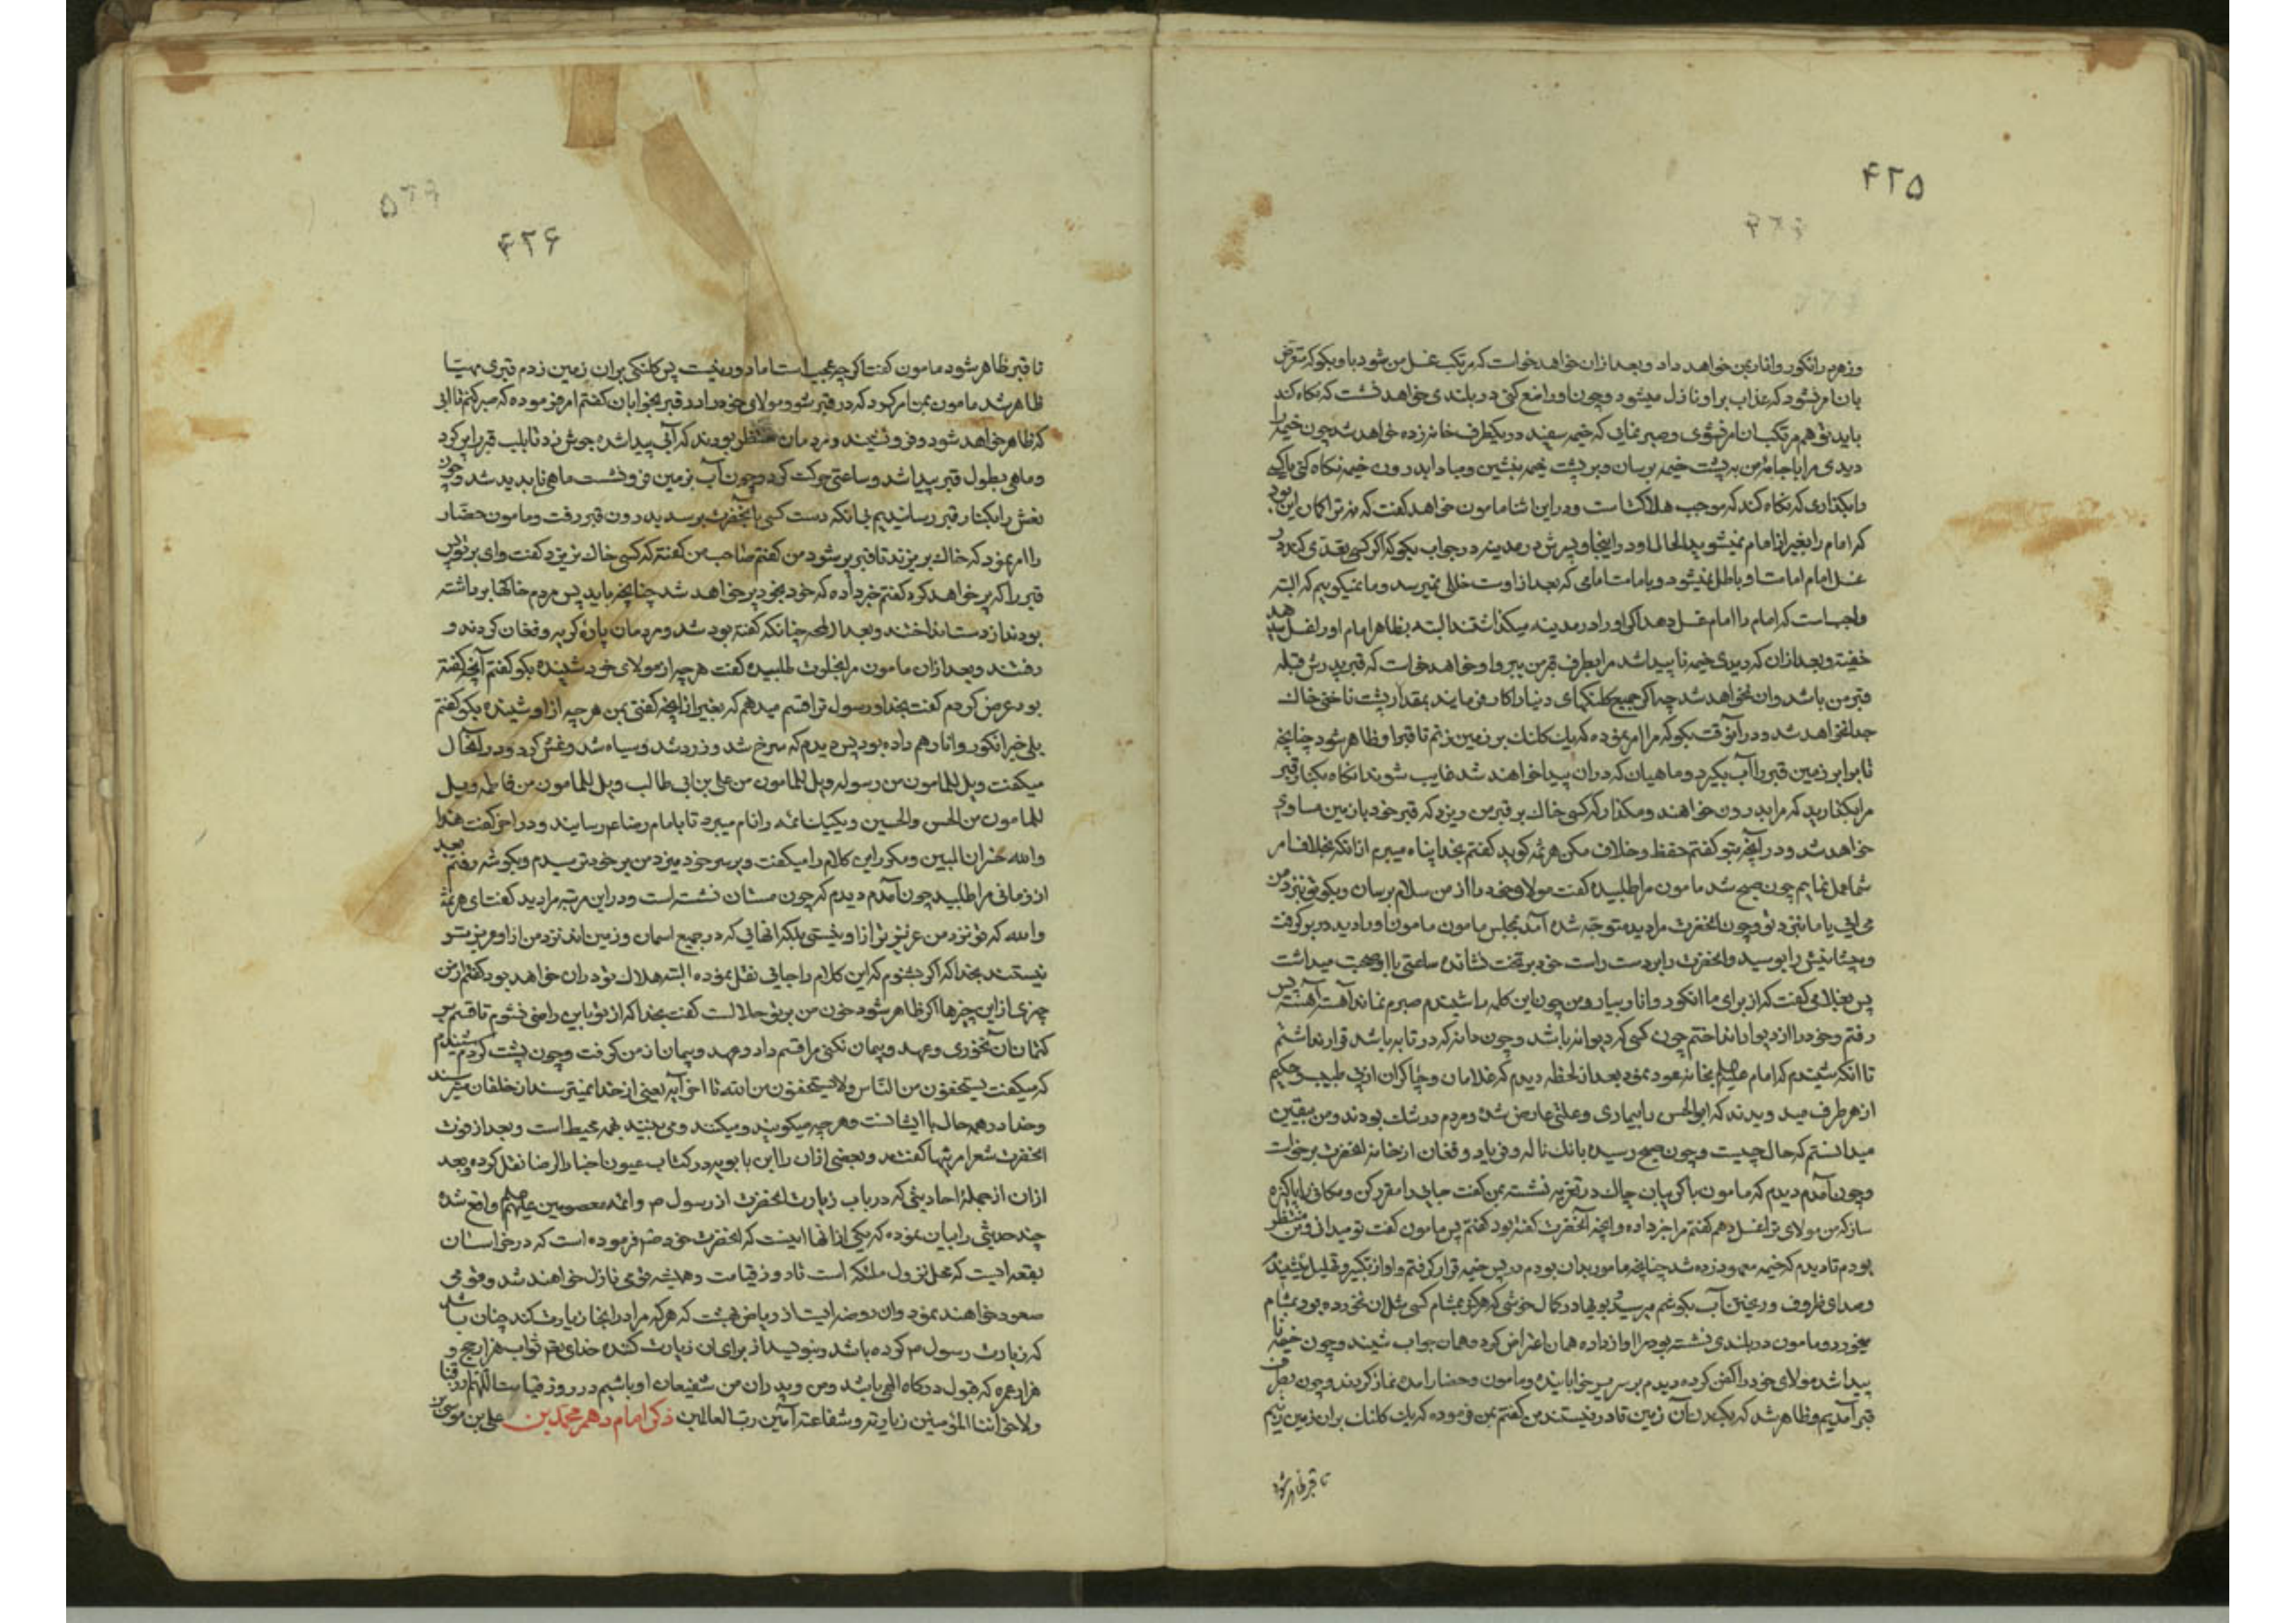 ۴۲۵
وزهر در انگور و انار بمن خواهد داد و بعد از ان خواهد خواست که مرتکب غسل من شود با و بگو که متعرض
بان امر نشود که عذاب بر او نازل میشود و چون او را منع کنی در بلندی خواهد نشست که نگاه کند
باید تو هم مرتکب ان امر نشوی و صبر نمایی که خیمه سفید در یکطرف خانه زده خواهد شد چون خیمه را
دیدی مرا با جامهٔ من به پشت خیمه برسان و در پشت خیمه بنشین و مبادا بدرون خیمه نگاه کنی یا کسی
را بگذاری که نگاه کند که موجب هلاکتست و در این اثنا مامون خواهد گفت که نه ترا گمان این بود
که امام را بغیر از امام نمیشوید الحال او در اینجا و پسرش در مدینه در جواب بگو که اگر کسی تعدی کند در
غسل امام امامت او باطل نمیشود و بامامت امامی که بعد از اوست خللی نمیرسد و ما نمیگوییم که البته
واجبست که امام را امام غسل دهد اگر او را در مدینه میگذاشتند البته بظاهر امام او را غسل میدهد
خفیة و بعد از ان که دیدی خیمه ناپیدا شد مرا بطرف قبر من ببر و او خواهد خواست که قبر پدرش قبله
قبر من باشد و ان نخواهد شد چه اگر جمیع کلنگهای دنیا را کار فرمایند بمقدار پشت ناخنی خاک
جدا نخواهد شد و در آنوقت بگو که مرا امر نموده که یک کلنگ بر زمین زنم تا قبر او ظاهر شود چنانچه
تا برابر زمین قبر را آب بگیرد و ماهیان که در ان پیدا خواهند شد غایب شوند انگاه بکنار قبر
مرا بگذارید که مرا بدرون خواهند و مگذار که کسی خاک بر قبر من ریزد که قبر خود با زمین مساوی
خواهد شد و در آنچه بتو گفتم حفظ و خلاف مکن هرثمه گوید گفتم بخدا پناه میبرم از انکه بخلاف امر
شما عمل نمایم چون صبح شد مامون مرا طلبیده گفت مولای خود را از من سلام برسان و بگو تو بنزد من
می ایی یا ما بنزد تو و چون انحضرت مرا دیده متوجه شده آمد بمجلس مامون مامون او را دید در بر گرفت
و پیشانیش را بوسید و انحضرت را بر دست راست خود بر تخت نشانده ساعتی با او صحبت میداشت
پس بغلامی گفت که از برای ما انگور و انار بیار و من چون این کلمه را شنیدم صبرم نماند آهسته آهسته پس
رفتم و خود را از دیوار انداختم چون کسی که دیوانه باشد و چون دانه که در تابه باشد قرار نداشتم
تا انکه شنیدم که امام علیه السلم بخانه عود نمود بعد از لحظه دیدم که غلامان و چاکران از پی طبیب و حکیم
از هر طرف میدویدند که ابوالحسن را بیماری و علتی عارض شده و مردم در شک بودند و من بیقین
میدانستم که حال چیست و چون صبح رسیده بانک ناله و فریاد و فغان از خانه انحضرت برخواست
و چون آمدم دیدم که مامون با گریبان چاک در تعزیه نشسته بمن گفت جایی را مقرر کن و مکانی را پاکیزه
ساز که من مولای ترا غسل دهم گفتم مرا خبر داده و انچه آنحضرت گفته بود گفتم پس مامون گفت تو میدانی و من منتظر
بودم تا دیدم که خیمه سفید زده شد چنانچه مامور بدان بودم در پس خیمه قرار گرفتم و اواز تکبیر و تهلیل میشنیدم
و صدای ظروف و ریختن آب بگوشم میرسید و بویها در کمال خوشی که هرگز بمشام کسی مثل ان نخورده بود بمشام
میخورد و مامون در بلندی نشسته بود مرا اواز داده همان اعتراض کرد و همان جواب شنید و چون خیمه نا
پیدا شد مولای خود را کفن کرده دیدم بر سریر خوابانیده و مامون و حضار امده نماز کردند و چون بطرف
قبر آمدیم و ظاهر شد که بکندن آن زمین قادر نیستند من گفتم بمن فرموده که یک کلنگ بران زمین زنم
تا قبر ظاهر شود
۴۲۶
تا قبر ظاهر شود مامون گفت اگر چه عجیب است اما دور نیست پس کلنگی بران زمین زدم قبری مهیا
ظاهر شد مامون بمن امر کرد که در قبر شو و مولای خود را در قبر بخوابان گفتم امر فرموده که صبر کنم تا ابی
که ظاهر خواهد شود و فرو نشیند و مردمان منتظر بودند که آبی پیدا شده جوش زد تا بلب قبر را پر کرد
و ماهی بطول قبر پیدا شد و ساعتی حرکت کرد و چون آب بزمین فرو نشست ماهی ناپدید شد و چون
نعش را بکنار قبر رسانیدیم بی انکه دست کسی بانحضرت برسد بدرون قبر رفت و مامون حضار
را امر نمود که خاک بریزند تا قبر پر شود من گفتم صاحب من گفته که کسی خاک نریزد گفت وای بر تو پس
قبر را که پر خواهد کرد گفتم خبر داده که خود بخود پر خواهد شد چنانچه باید پس مردم خاکها برداشته
بودند از دست انداختند و بعد از لمحه چنانکه گفته بود شد و مردمان پارهٔ گریه و فغان کردند و
رفتند و بعد از ان مامون مرا بخلوت طلبیده گفت هر چه از مولای خود شنیده بگو گفتم آنچه گفته
بود عرض کردم گفت بخدا و رسول ترا قسم میدهم که بغیر از انچه گفتی بمن هر چه از او شنیده بگو گفتم
بلی خبر انگور و انار هم داده بود پس دیدم که سرخ شد و زرد شد و سیاه شد و غش کرد و در آنحال
میگفت ویل للمامون من رسوله ویل للمامون من علی بن ابی طالب ویل للمامون من فاطمه ویل
للمامون من الحسن والحسین و یکیک ائمه را نام میبرد تا بامام رضا ع رسانید و در اخر گفت هذا
والله خسران المبین و مکرر این کلام را میگفت و بر سر خود میزد من بر خود ترسیدم و بگوشه رفتم بعد
از زمانی مرا طلبید چون آمدم دیدم که چون مستان نشسته است و در این مرتبه مرا دید گفت ای هرثمه
والله که تو نزد من عزیزتر از او نیستی بلکه انهایی که در جمیع اسمان و زمین اند نزد من از او عزیزتر
نیستند بخدا که اگر بشنوم که این کلام را جایی نقل نموده البته هلاک تو در ان خواهد بود گفتم از من
چیزی از این چیزها اگر ظاهر شود خون من بر تو حلالست گفت بخدا که از تو باین راضی نشوم تا قسم بر
کتمان آن نخوری و عهد و پیمان نکنی مرا قسم داد و عهد و پیمان از من گرفت و چون پشت کردم شنیدم
که میگفت یستخفون من الناس ولا یستخفون من الله تا اخر آیه یعنی از خدا نمیترسند از خلقان میترسند
و خدا در همه حال با ایشانست و هر چه میگویند و میکنند و می بینند بهمه محیط است و بعد از فوت
انحضرت شعرا مرثیها گفتند و بعضی از ان را ابن بابویه در کتاب عیون اخبار الرضا نقل کرده و بعد
از ان از جملهٔ احادیثی که در باب زیارت انحضرت از رسول ص و ائمه معصومین علیهم السلم واقع شده
چند حدیثی را بیان نموده که یکی از انها اینست که انحضرت خود فرموده است که در خراسان
بقعه ایست که محل نزول ملئکه است تا روز قیامت و همیشه فوجی نازل خواهند شد و فوجی
صعود خواهند نمود و ان روضه ایست از ریاض بهشت که هر که مرا در انجا زیارت کند چنان باشد
که زیارت رسول ص کرده باشد و بنویسد از برای ان زیارت کننده خدای تعالی ثواب هزار حج و
هزار عمره که قبول درگاه الهی باشد و من و پدران من شفیعان او باشیم در روز قیامت اللهم ارزقنا
ولاخواننا المؤمنین زیارته وشفاعته آمین رب العالمین ذکر امام دهم محمد بن علی بن موسی بن